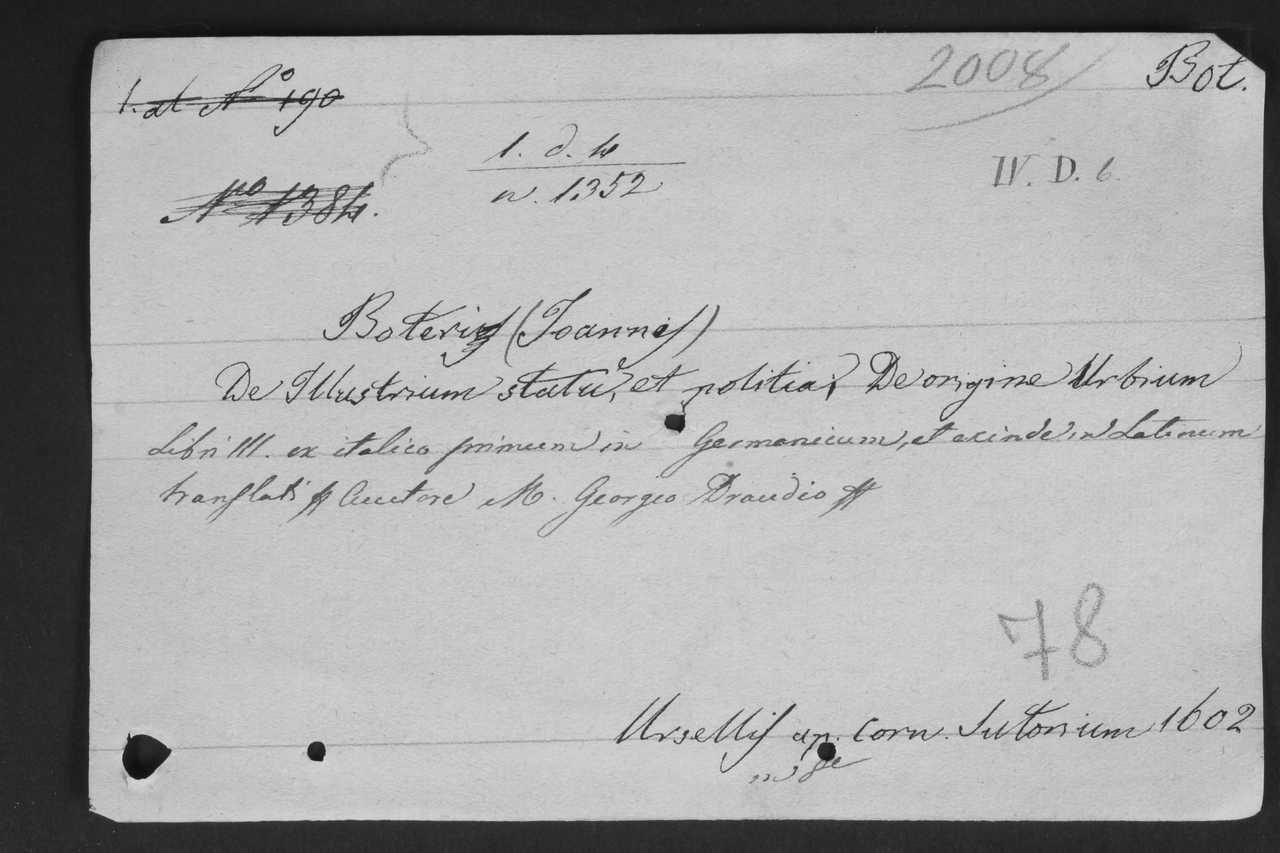 2008 Bot.
1. d. N° 190
1. d. 4
n. 1352
IV. D. 6.
N° 1384.
Boteris (Joannes)
De Illustrium statu, et politia, De origine Urbium
Libri III. ex italico primum in Germanicum, et exinde in Latinum
translati Auctore M. Georgio Draudio
78
Ursellis ap. Corn. Sutorium 1602
in 8e